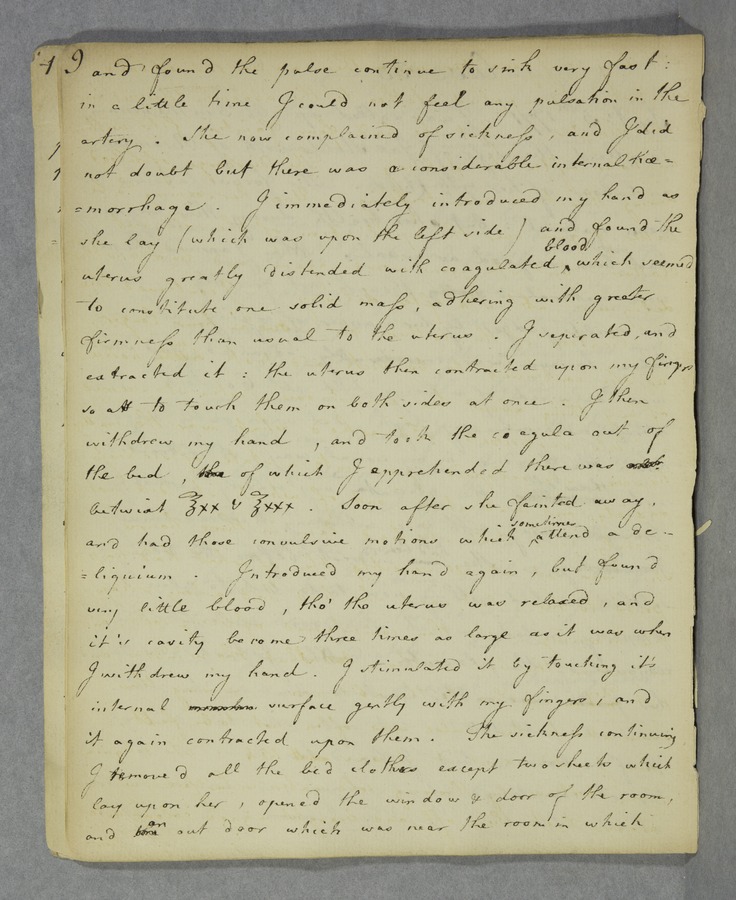 49 and found the pulse continue to sink very fast:
in a little time I could not feel any pulsation in the
artery. She now complained of sickness, and I did
not doubt but there was a considerable internal hæ=
=morrhage. I immediately introduced my hand as
she lay (which was upon the left side) and found the
uterus greatly distended with coagulated ^ blood which seemed
to constitute one solid mass, adhering with greater
firmness than usual to the uterus. I seperated, and
extracted it: the uterus then contracted upon my fingers
so as to touch them on both sides at once. I then
withdrew my hand, and took the coagula out of
the bed, of which I apprehended there was
betwixt ℥xx & ℥xxx. Soon after she fainted away,
and had those convulsive motions which ^ sometimes attend a de=
=liquium. Introduced my hand again, but found
very little blood, tho' the uterus was relaxed, and
it's cavity become three times as large as it was when
I withdrew my hand. I stimulated it by touching it's
internal surface gently with my fingers, and
it again contracted upon them. The sickness continuing
I remove'd all the bed clothes except two sheets which
lay upon her, opened the window & door of the room,
and an out door which was near the room in which